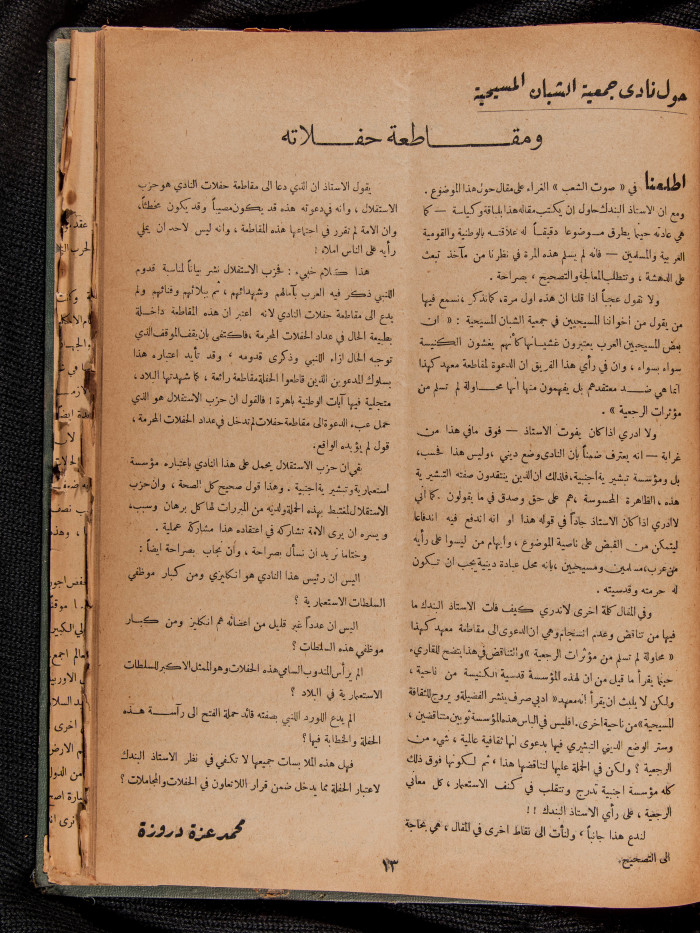 حول نادى جمعية الشبان المسيحية
ومقـــاطعة حفـــلاته
اطلعنا في « صوت الشعب » الغراء على مقال حول هذا الموضوع .
ومع ان الاستاذ البندك حاول ان يكتب مقاله هذا بلباقة وكياسة – كما
هي عادته حينما يطرق موضوعا دقيقاً له علاقته بالوطنية والقومية
العربية والمسلمين – فانه لم يسلم هذه المرة في نظرنا من مآخذ تبعث
على الدهشة ، وتتطلب المعالجة والتصحيح ، بصراحة .
ولا نقول عجباً اذا قلنا ان هذه اول مرة ، كما نذكر ، نسمع فيها
من يقول من اخواننا المسيحيين في جمعية الشبان المسيحية : « ان
بعض المسيحيين العرب يعتبرون غشيانها كأنهم يغشون الكنيسة
سواء بسواء ، وان في رأي هذا الفريق ان الدعوة لمقاطعة معهد كهذا
انما هي ضد معتقدهم بل يفهمون منها أنها محاولة لم تسلم من
مؤثرات الرجعية » .
ولا ادري اذا كان يفوت الاستاذ – فوق مافي هذا من
غرابة – انه يعترف ضمناً بان النادى وضع ديني ، وليس هذا فحسب ،
بل ومؤسسة تبشيرية اجنبية ، فلذلك ان الذين ينتقدون صفته التبشيرية
هذه ، الظاهرة المحسوسة ، هم على حق وصدق في ما يقولون . كما أني
لاادري اذا كان الاستاذ جاداً في قوله هذا او انه اندفع فيه اندفاعا
ليتمكن من القبض على ناصية الموضوع ، وايهام من ليسوا على رأيه
من عرب ، مسلمين ومسيحيين ، بانه محل عبادة دينية يجب ان تكون
له حرمته وقدسيته .
وفي المقال كلمة اخرى لاندري كيف فات الاستاذ البندك ما
فيها من تناقض وعدم انسجام وهي ان الدعوى الى مقاطعة معهد كهذا
« محاولة لم تسلم من مؤثرات الرجعية » والتناقض في هذا يتضح للقاريء
حينما يقرأ ما قيل من ان لهذه المؤسسة قدسية الكنيسة من ناحية ،
ولكن لا يلبث ان يقرأ انه معهد « ادبي صرف ينشر الفضيلة ويروج للثقافة
المسيحية » من ناحية اخرى . افليس في الباس هذه المؤسسة ثوبين متناقضين ،
وستر الوضع الديني التبشيري فيها بدعوى انها ثقافية عالمية ، شيء من
الرجعية ؟ ولكن في الحملة عليها لتناقضها هذا ، ثم لكونها فوق ذلك
كله مؤسسة اجنبية تدرج وتتقلب في كنف الاستعمار ، كل معاني
الرجعية ، على رأي الاستاذ البندك !!
لندع هذا جانباً ، ولنأت الى نقاط اخرى في المقال ، هي بحاجة
الى التصحيح .
يقول الاستاذ ان الذي دعا الى مقاطعة حفلات النادي هو حزب
الاستقلال ، وانه في دعوته هذه قد يكون مصيباً وقد يكون مخطئاً،
وان الامة لم تقرر في اجتماعها هذه المقاطعة ، وانه ليس لاحد ان يملي
رأيه على الناس املاء !
هذا كلام خبيء : فحزب الاستقلال نشر بياناً لمناسبة قدوم
اللنبي ذكر فيه العرب بآمالهم وشهدائهم ، ثم ببلائهم وفنائهم ولم
يدع الى مقاطعة حفلات النادي لانه اعتبر ان هذه المقاطعة داخلة
بطبيعة الحال في عداد الحفلات المحرمة ، فاكتفى بان يقف الموقف الذي
توجبه الحال ازاء اللنبي وذكرى قدومه ، وقد تأيد اعتباره هذا
بسلوك المدعوين الذين قاطعوا الحفلة مقاطعة رائعة ، كما شهدتها البلاد ،
متجلية فيها آيات الوطنية باهرة ! فالقول ان حزب الاستقلال هو الذي
حمل عبء الدعوة الى مقاطعة حفلات لم تدخل في عداد الحفلات المحرمة ،
قول لم يؤيده الواقع .
بقي ان حزب الاستقلال يحمل على هذا النادي باعتباره مؤسسة
استعمارية وتبشيرية اجنبية . وهذا قول صحيح كل الصحة ، وان حزب
الاستقلال لمغتبط بهذه الحملة ولديه من المبررات لها كل برهان وسبب ،
ويسره ان يرى الامة تشاركه في اعتقاده هذا مشاركة عملية .
وختاما نريد ان نسأل بصراحة ، وأن نجاب بصراحة ايضاً :
اليس ان رئيس هذا النادي هو انكليزي ومن كبار موظفي
السلطات الاستعمارية ؟
اليس ان عدداً غير قليل من اعضائه هم انكليز ومن كبار
موظفي هذه السلطات ؟
الم يرأس المندوب السامي هذه الحفلات وهو الممثل الاكبر للسلطات
الاستعمارية في البلاد ؟
الم يدع اللورد اللنبي بصفته قائد حملة الفتح الى رآسة هذه
الحفلة والخطابة فيها ؟
فهل هذه الملابسات جميعها لا تكفي في نظر الاستاذ البندك
لاعتبار الحفلة مما يدخل ضمن قرار اللاتعاون في الحفلات والمجاملات ؟
محمد عزة دروزة
١٣